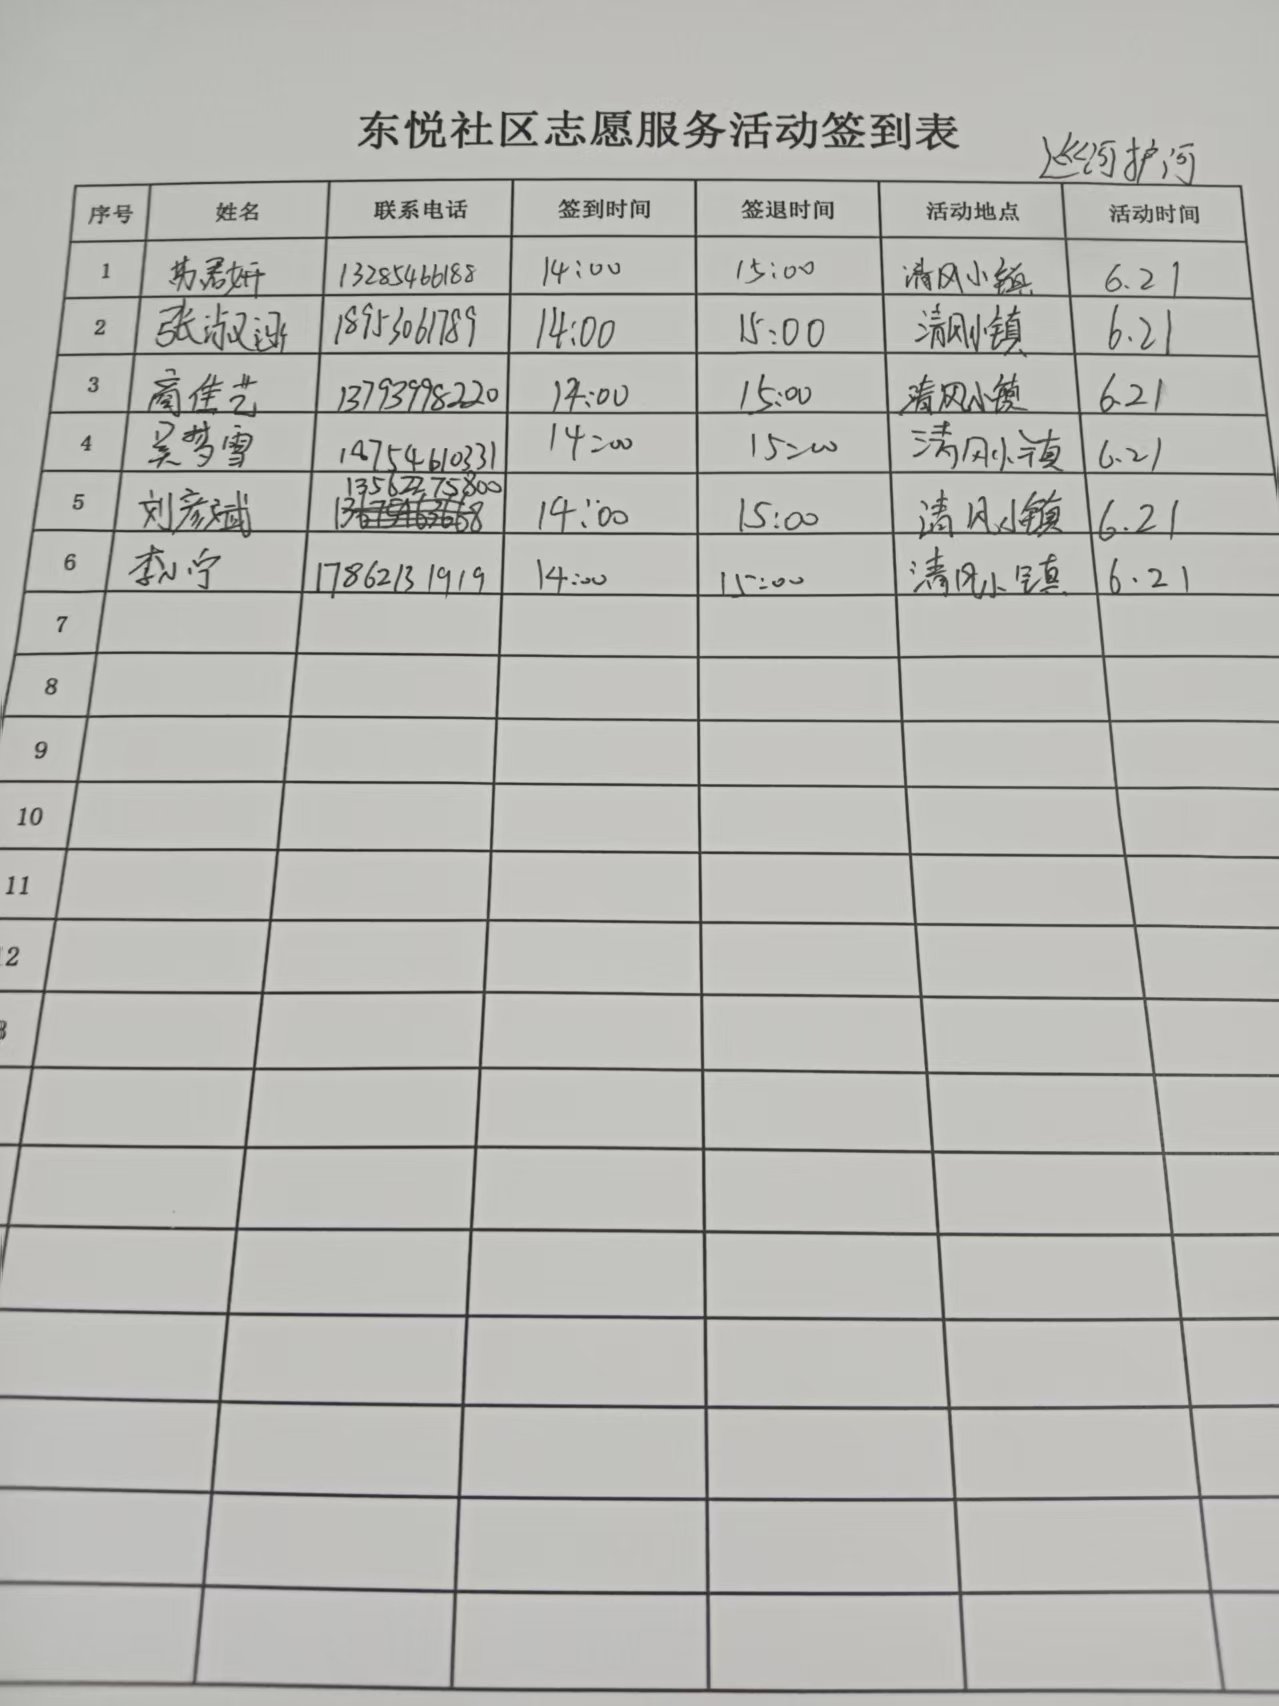 东悦社区志愿服务活动签到表
巡河护河
序号 姓名 联系电话 签到时间 签退时间 活动地点 活动时间
1 苏君妍 13285466188 14:00 15:00 清风小镇 6.21
2 张淑 18953061789 14:00 15:00 清风小镇 6.21
3 商佳艺 13793998220 14:00 15:00 清风小镇 6.21
4 吴梦雪 18754610331 14:00 15:00 清风小镇 6.21
13562275800
5 刘彦斌 14:00 15:00 清风小镇 6.21
6 李小宁 17862131919 14:00 15:00 清风小镇 6.21
7
8
9
10
11
12